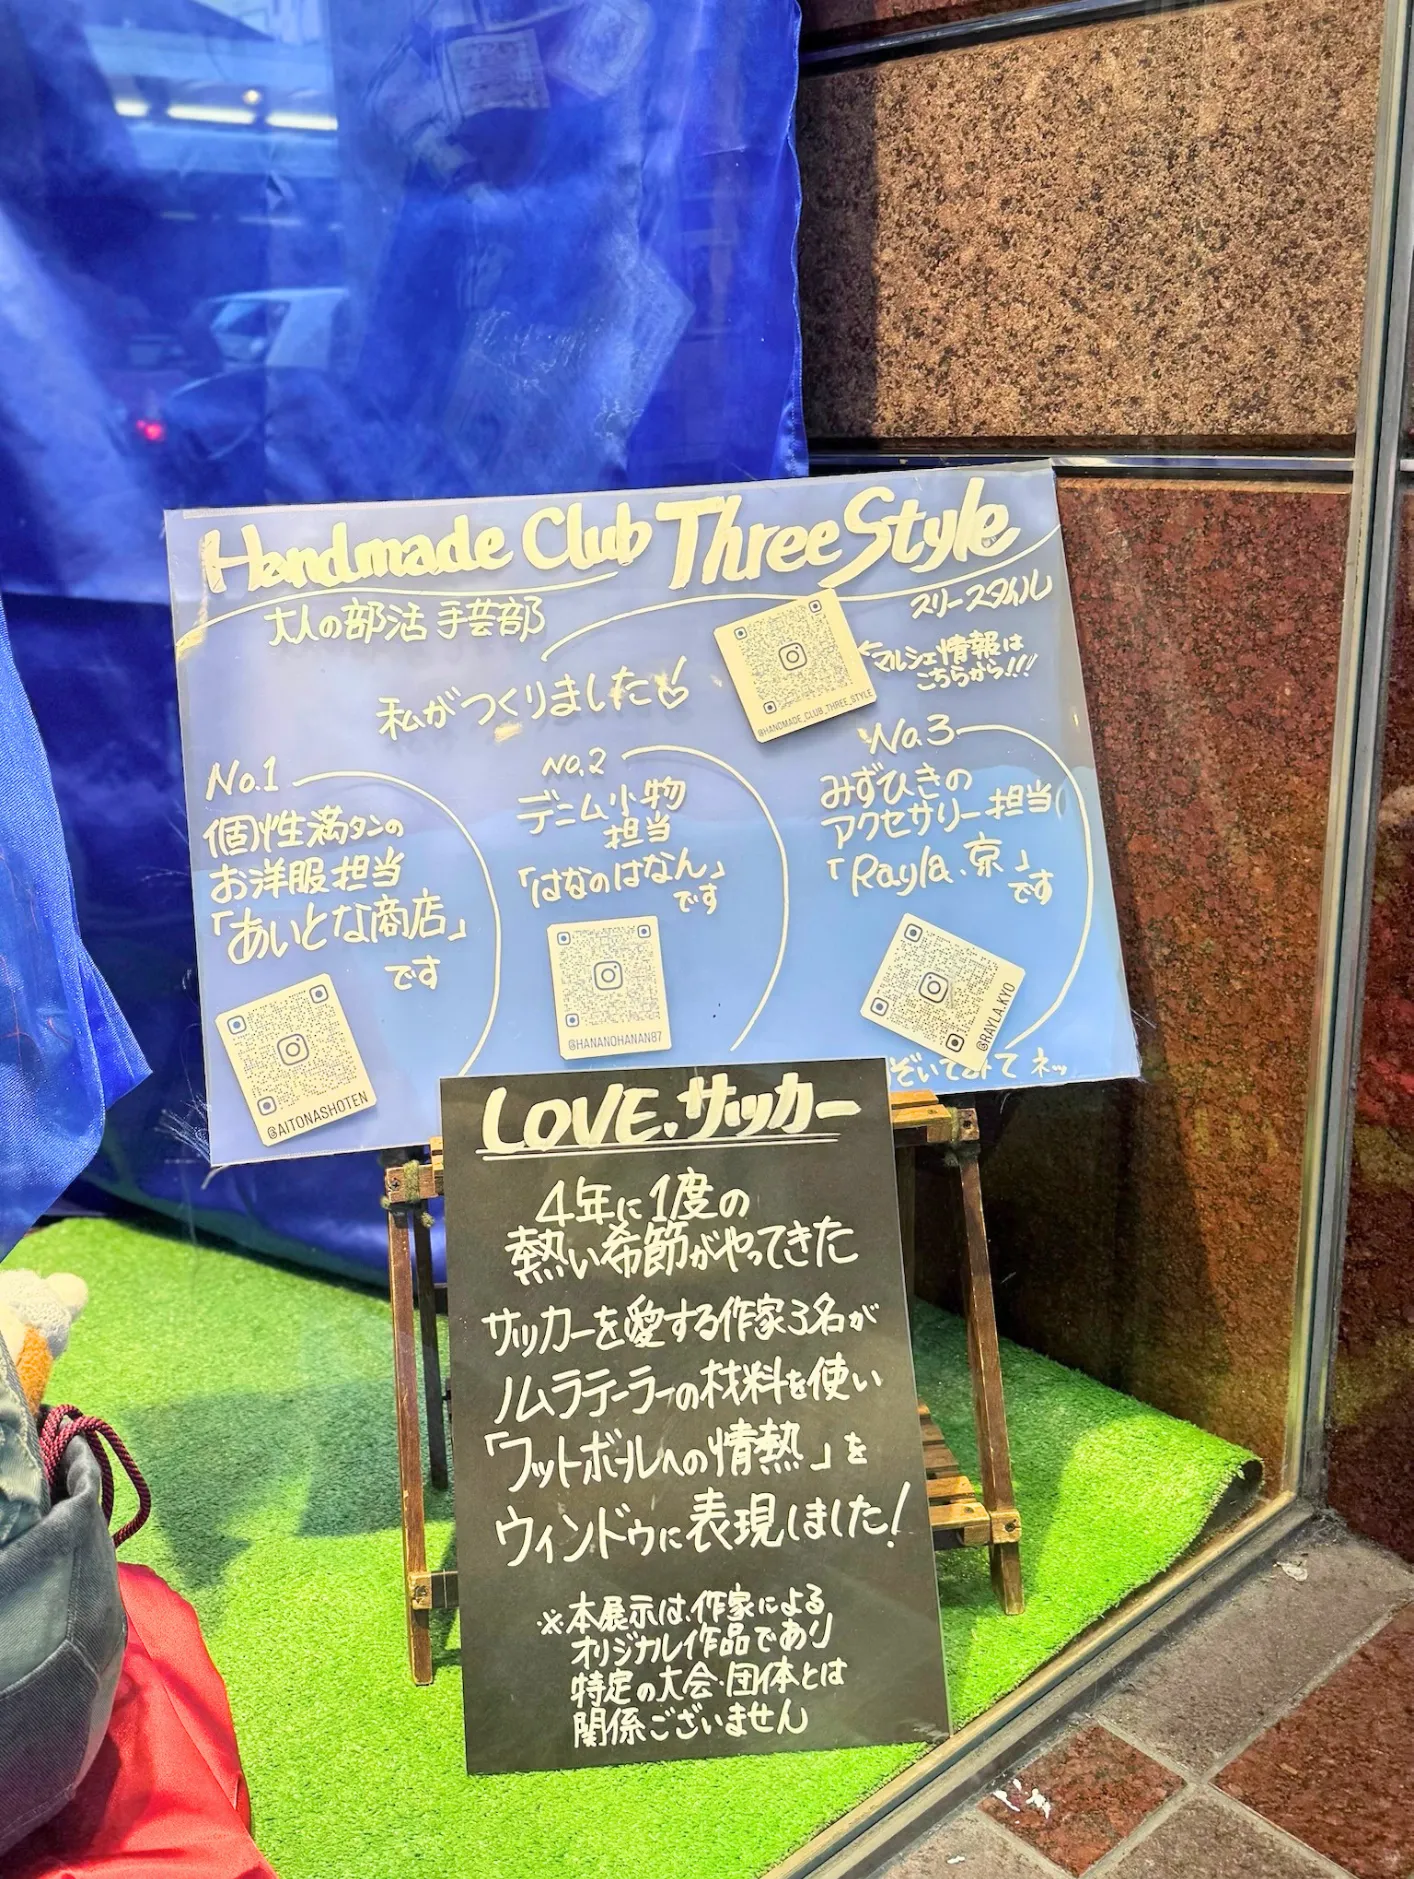 Handmade Club Three Style
スリースタイル
大人の部活 手芸部
私がつくりました
@HANDMADE_CLUB_THREE_STYLE
←マルシェ情報は
こちらから!!!
No.1
個性満タンの
お洋服担当
「あいとな商店」
です
@AITONASHOTEN
No.2
デニム小物
担当
「はなのはなん」
です
@HANANOHANAN87
No.3
みずひきの
アクセサリー担当
「Rayla.京」
です
@RAYLA.KYO
ぞいてみてネッ
LOVE.サッカー
4年に1度の
熱い季節がやってきた
サッカーを愛する作家3名が
ノムラテーラーの材料を使い
「フットボールへの情熱」を
ウィンドウに表現しました!
※本展示は、作家による
オリジナル作品であり
特定の大会・団体とは
関係ございません